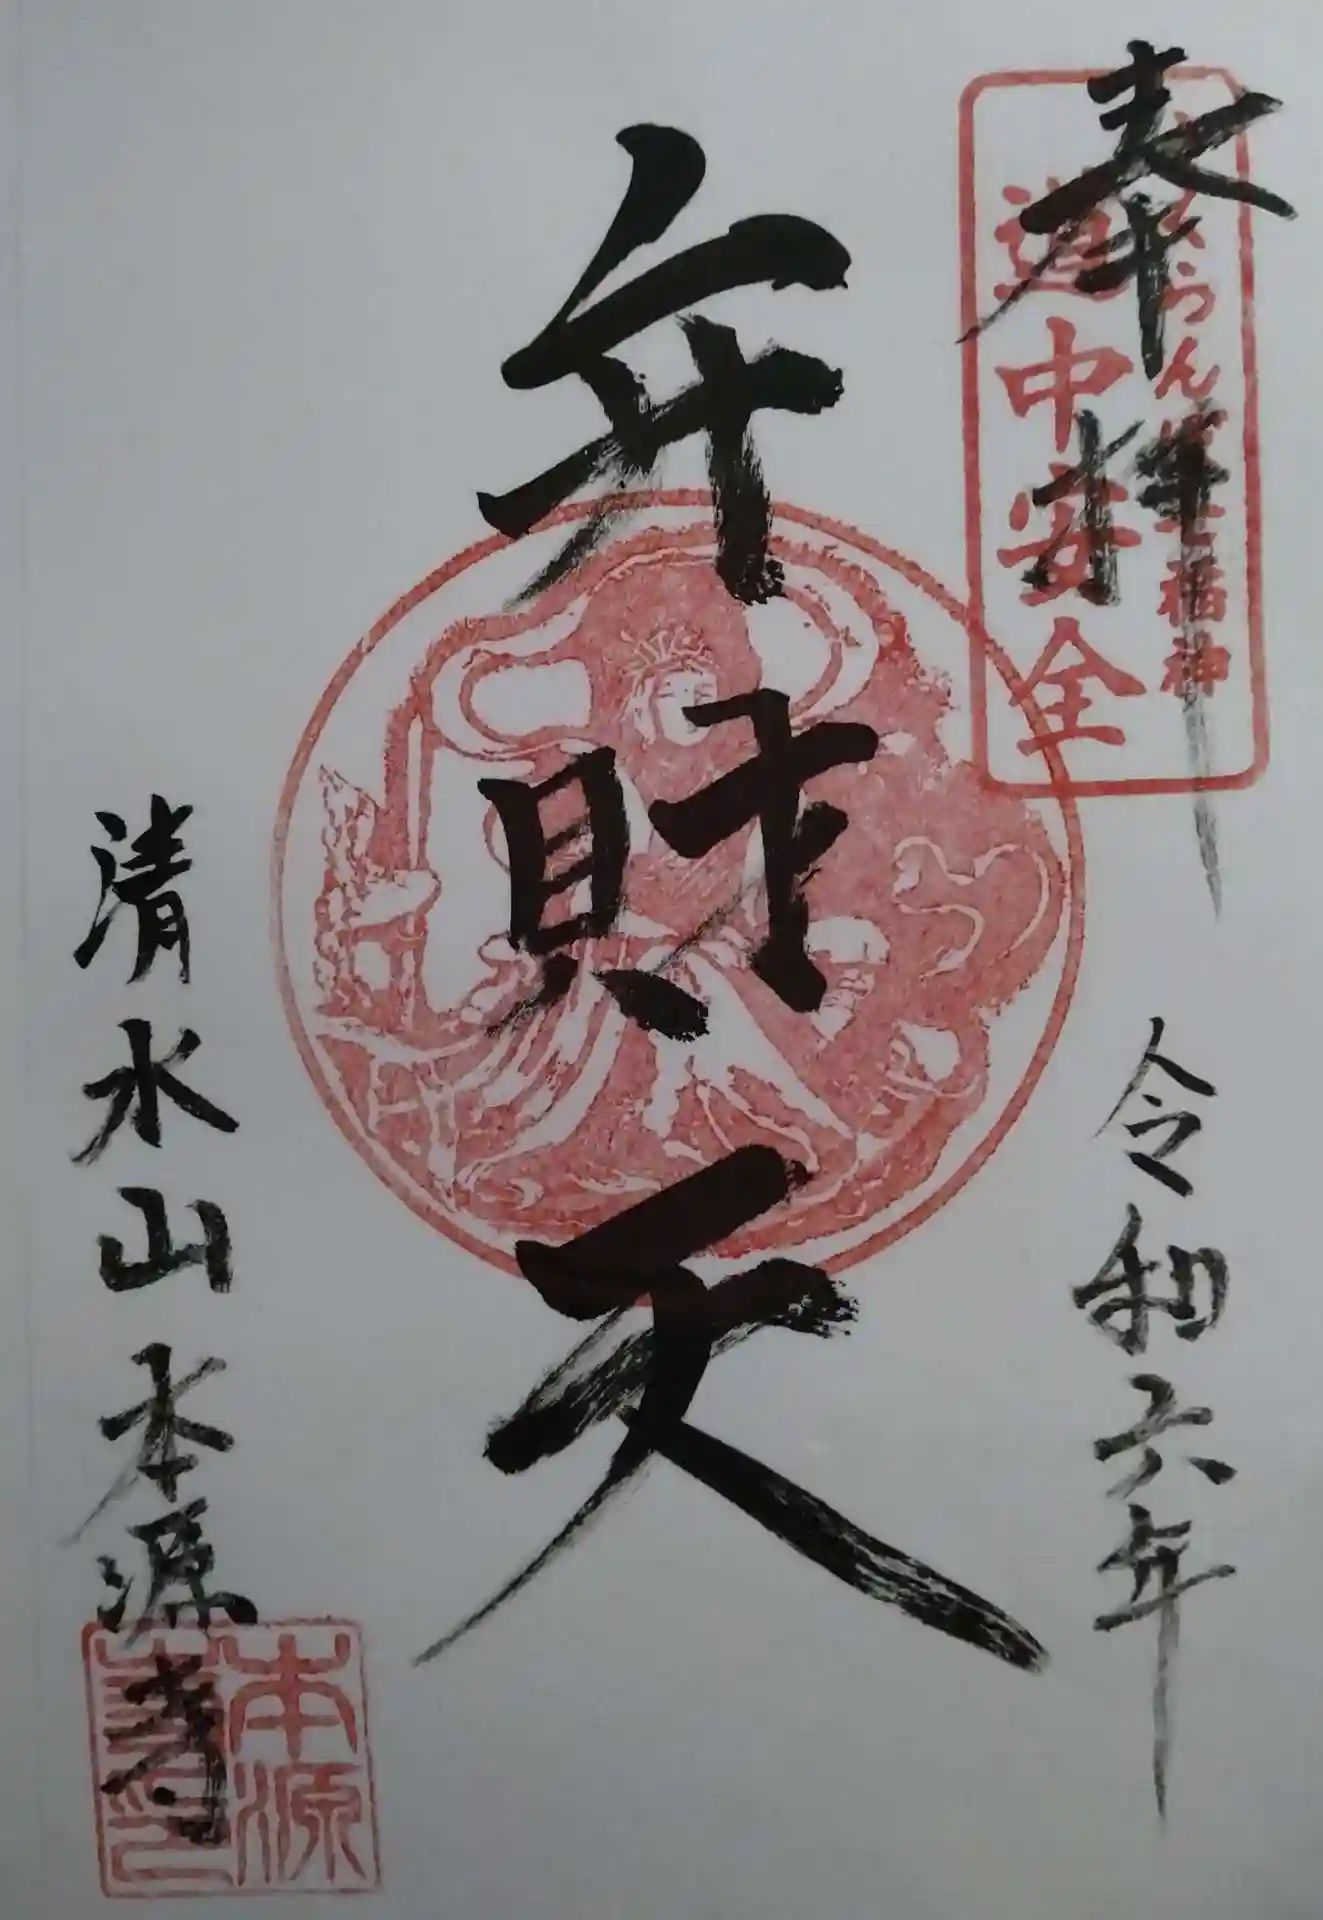 奉拝
さくらんぼ七福神
道中安全
令和六年
弁財天
清水山本源寺
本源寺印